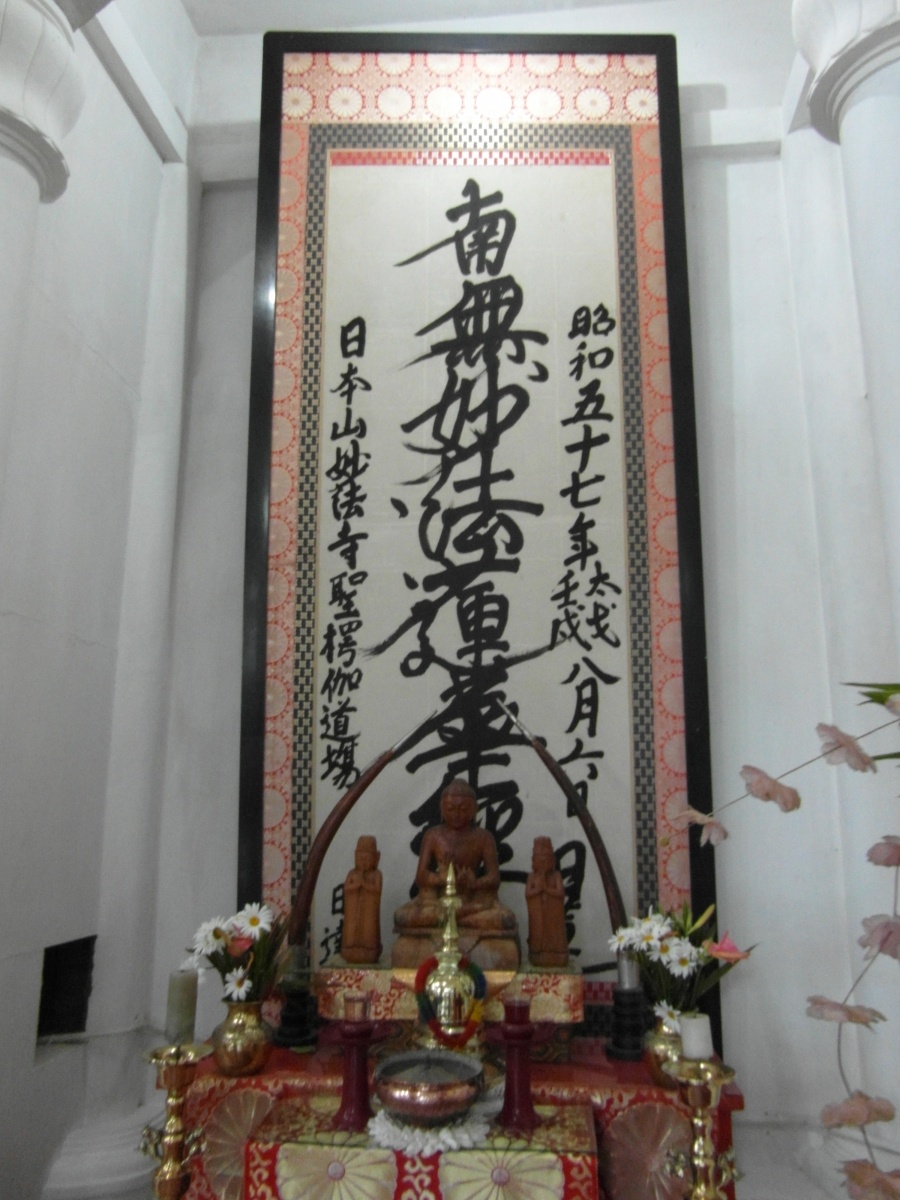 昭和五十七年太戈壬戌八月六日
南無妙法蓮華經
日本山妙法寺聖楞伽道場
日達